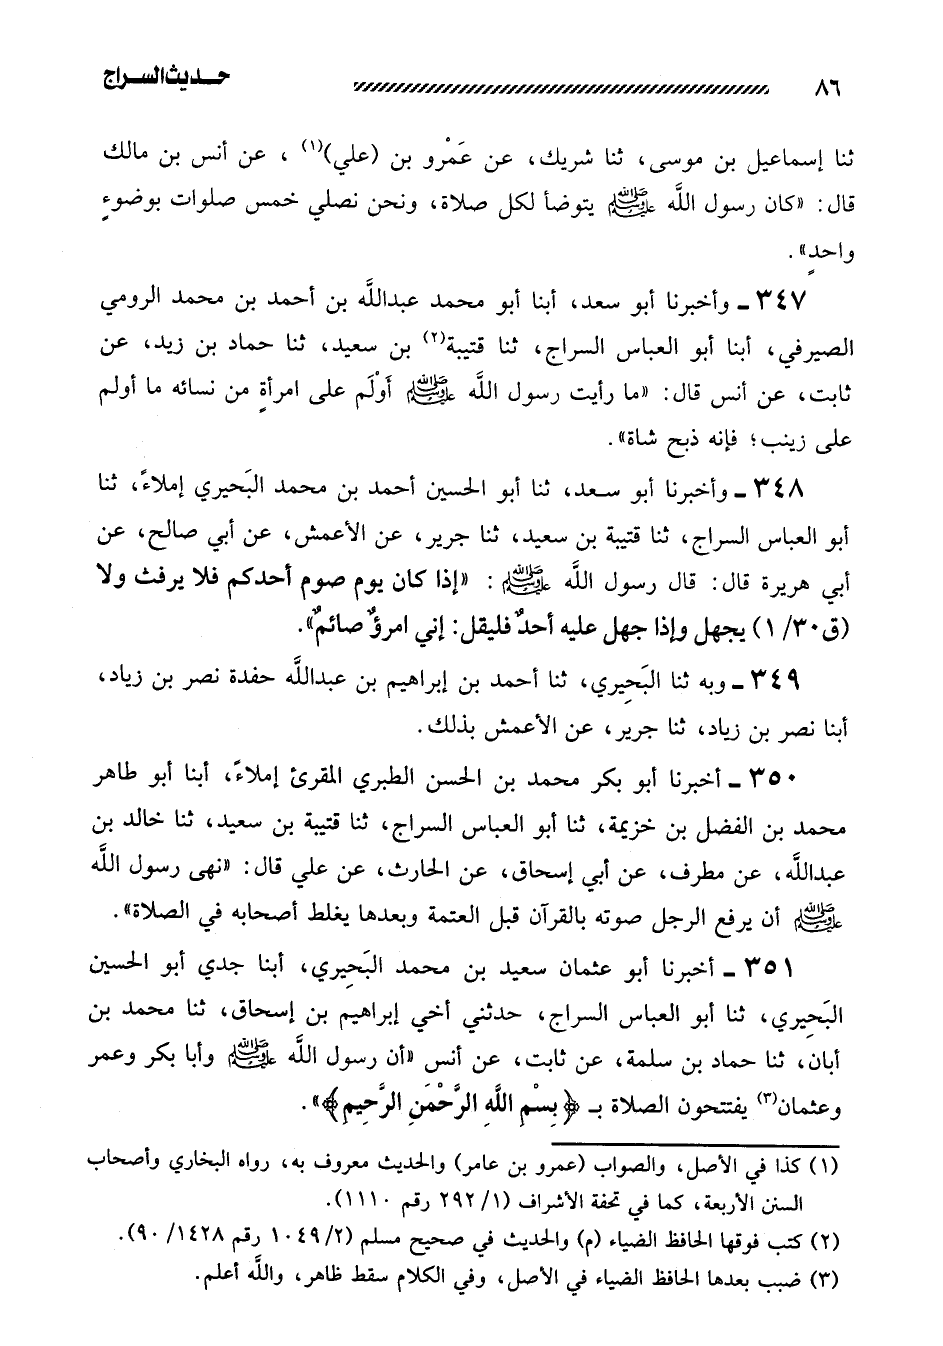 ٨٦ حديث السراج
ثنا إسماعيل بن موسى، ثنا شريك، عن عَمْرو بن (علي)(١) ، عن أنس بن مالك
قال: «كان رسول اللَّه ﷺ يتوضأ لكل صلاة، ونحن نصلي خمس صلوات بوضوءٍ
واحدٍ».
٣٤٧ ـ وأخبرنا أبو سعد، أبنا أبو محمد عبداللَّه بن أحمد بن محمد الرومي
الصيرفي، أبنا أبو العباس السراج، ثنا قتيبة(٢) بن سعيد، ثنا حماد بن زيد، عن
ثابت، عن أنس قال: «ما رأيت رسول اللَّه ﷺ أَوْلَم على امرأةٍ من نسائه ما أولم
على زينب؛ فإنه ذبح شاة».
٣٤٨ ـ وأخبرنا أبو سعد، ثنا أبو الحسين أحمد بن محمد البَحيري إملاءً، ثنا
أبو العباس السراج، ثنا قتيبة بن سعيد، ثنا جرير، عن الأعمش، عن أبي صالح، عن
أبي هريرة قال: قال رسول اللَّه ﷺ : «إذا كان يوم صوم أحدكم فلا يرفث ولا
(ق٣٠/ ١) يجهل وإذا جهل عليه أحدٌ فليقل: إني امرؤٌ صائمٌ».
٣٤٩ ـ وبه ثنا البَحِيري، ثنا أحمد بن إبراهيم بن عبداللَّه حفدة نصر بن زياد،
أبنا نصر بن زياد، ثنا جرير، عن الأعمش بذلك.
٣٥٠ ـ أخبرنا أبو بكر محمد بن الحسن الطبري المقرئ إملاءً، أبنا أبو طاهر
محمد بن الفضل بن خزيمة، ثنا أبو العباس السراج، ثنا قتيبة بن سعيد، ثنا خالد بن
عبداللَّه، عن مطرف، عن أبي إسحاق، عن الحارث، عن علي قال: «نهى رسول اللَّه
ﷺ أن يرفع الرجل صوته بالقرآن قبل العتمة وبعدها يغلط أصحابه في الصلاة».
٣٥١ ـ أخبرنا أبو عثمان سعيد بن محمد البَحِيري، أبنا جدي أبو الحسين
البَحِيري، ثنا أبو العباس السراج، حدثني أخي إبراهيم بن إسحاق، ثنا محمد بن
أبان، ثنا حماد بن سلمة، عن ثابت، عن أنس «أن رسول اللَّه ﷺ وأبا بكر وعمر
وعثمان(٣) يفتتحون الصلاة بـ ﴿بِسْمِ اللَّهِ الرَّحْمَنِ الرَّحِيمِ﴾».
(١) كذا في الأصل، والصواب (عمرو بن عامر) والحديث معروف به، رواه البخاري وأصحاب
السنن الأربعة، كما في تحفة الأشراف (١/ ٢٩٢ رقم ١١١٠).
(٢) كتب فوقها الحافظ الضياء (م) والحديث في صحيح مسلم (٢/ ١٠٤٩ رقم ١٤٢٨/ ٩٠).
(٣) ضبب بعدها الحافظ الضياء في الأصل، وفي الكلام سقط ظاهر، واللَّه أعلم.